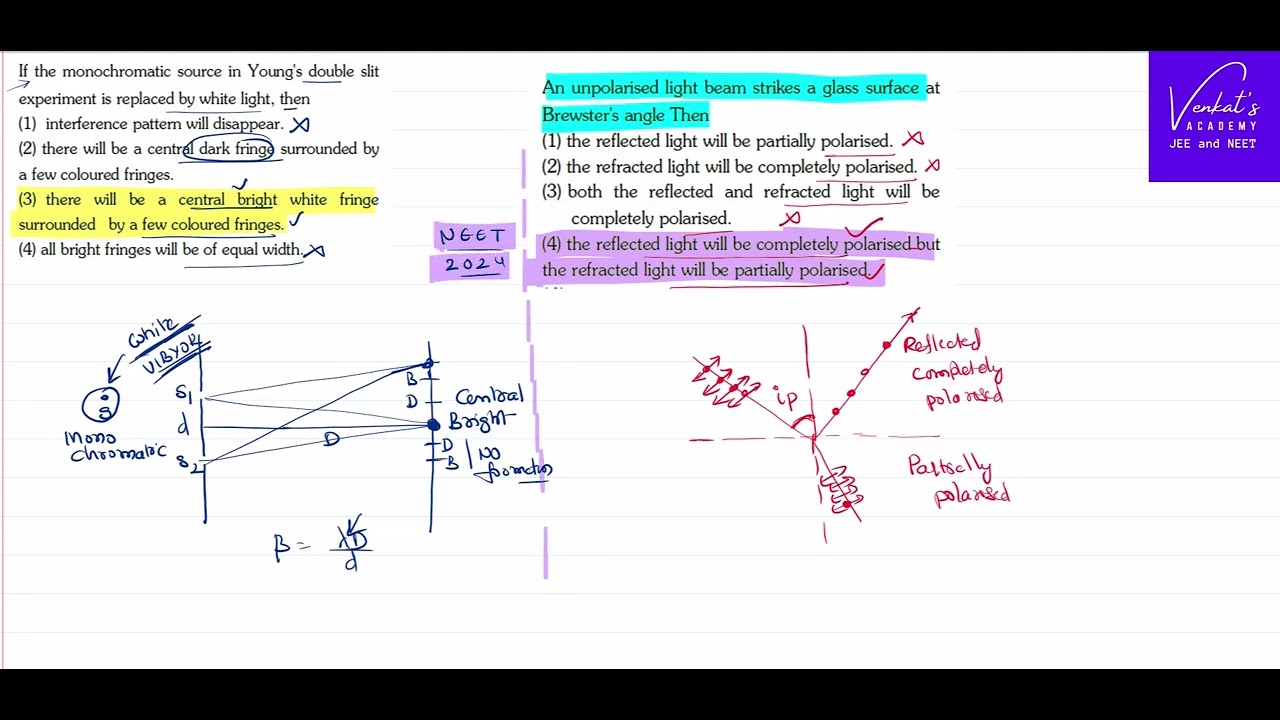 If the monochromatic source in Young's double slit
experiment is replaced by white light, then
(1) interference pattern will disappear.
(2) there will be a central dark fringe surrounded by
a few coloured fringes.
(3) there will be a central bright white fringe
surrounded by a few coloured fringes.
(4) all bright fringes will be of equal width.
NEET
2024
An unpolarised light beam strikes a glass surface at
Brewster's angle Then
(1) the reflected light will be partially polarised.
(2) the refracted light will be completely polarised.
(3) both the reflected and refracted light will be
completely polarised.
(4) the reflected light will be completely polarised but
the refracted light will be partially polarised.
Venkat's
ACADEMY
JEE and NEET
White
VIBYOR
S1
d
S2
Mono
chromatic
D
B
D
Central
Bright
D
B
No
formation
β = λD
d
ip
Reflected
completely
polarised
Partially
polarised